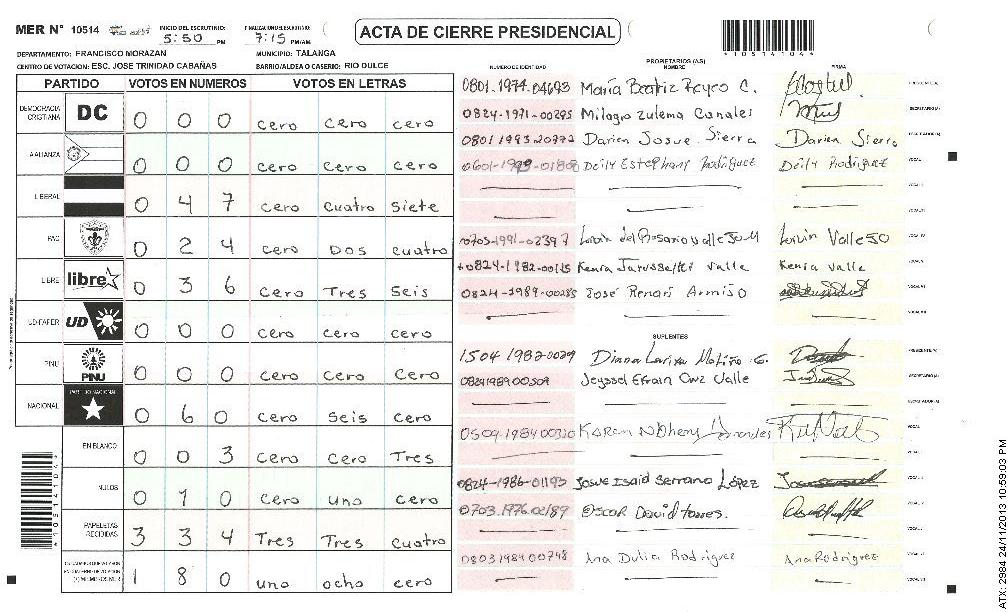 MER N° 10514
INICIO DEL ESCRUTINIO: 5:50 PM
FINALIZACION DEL ESCRUTINIO: 7:15 PM/AM
ACTA DE CIERRE PRESIDENCIAL
DEPARTAMENTO: FRANCISCO MORAZAN MUNICIPIO: TALANGA
CENTRO DE VOTACION: ESC. JOSE TRINIDAD CABAÑAS BARRIO/ALDEA O CASERIO: RIO DULCE
PARTIDO VOTOS EN NUMEROS VOTOS EN LETRAS
DEMOCRACIA CRISTIANA DC 0 0 0 cero cero cero
AALIANZA 0 0 0 cero cero cero
LIBERAL 0 4 7 cero cuatro siete
PAC 0 2 4 cero Dos cuatro
LIBRE libre 0 3 6 cero Tres seis
UD/FAPER UD 0 0 0 cero cero cero
PINU PINU 0 0 0 cero cero cero
NACIONAL PARTIDO NACIONAL 0 6 0 cero seis cero
EN BLANCO 0 0 3 cero cero Tres
NULOS 0 1 0 cero uno cero
PAPELETAS RECIBIDAS 3 3 4 Tres Tres cuatro
1 8 0 uno ocho cero
NUMERO DE IDENTIDAD PROPIETARIOS (AS) NOMBRE FIRMA
0801.1974.04693 María Beatriz Reyes C. PRESIDENTE(A)
0824-1971-00295 Milagro Zulema Canales SECRETARIO(A)
0801 1993-20772 Darien Josue Sierra Darien Sierra ESCRUTADOR(A)
0601-1999-01808 Deily Estephany Rodriguez Deily Rodriguez VOCAL I
VOCAL II
VOCAL III
0703-1991-02397 del Rosario Valle Valle VOCAL IV
0824-1982-00115 Kenia Valle Kenia Valle VOCAL V
0824-1989-00285 José Renari Armijo VOCAL VI
VOCAL VII
SUPLENTES
1504 1982-0029 Diana Larixa G. PRESIDENTE(A)
0824198900509 Jeyssel Efrain Cruz Valle SECRETARIO(A)
ESCRUTADOR(A)
0509-1984 Karen VOCAL I
0824-1986-01193 Josue Isaid Serrano López
0703.1976.02189 Oscar David torres.
0803198400748 Ana Dulia Rodriguez Ana Rodriguez
*105141044*
ATX: 2984 24/11/2013 10:59:03 PM